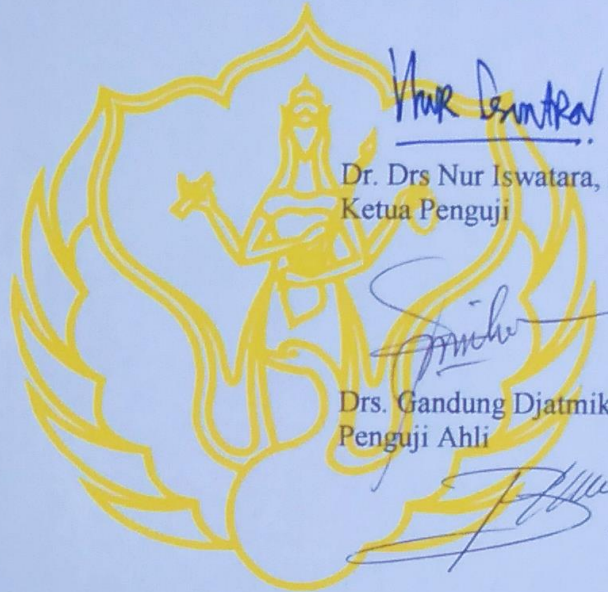 Dr. Drs Nur Iswatara,
Ketua Penguji
Drs. Gandung Djatmik
Penguji Ahli